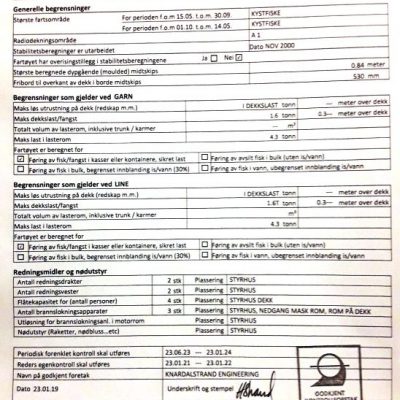 Generelle begrensninger
Største fartsområde For perioden f.o.m 15.05. t.o.m. 30.09. KYSTFISKE
For perioden f.o.m 01.10. t.o.m. 14.05. KYSTFISKE
Radiodekningsområde A 1
Stabilitetsberegninger er utarbeidet Dato NOV 2000
Fartøyet har overisingstillegg i stabilitetsberegningene Ja Nei ✓
Største beregnede dypgående (moulded) midtskips 0,84 meter
Fribord til overkant av dekk i borde midtskips 530 mm
Begrensninger som gjelder ved GARN
Maks løs utrustning på dekk (redskap m.m.) I DEKKSLAST tonn --- meter over dekk
Maks dekkslast/fangst 1.6 tonn 0.3--- meter over dekk
Totalt volum av lasterom, inklusive trunk / karmer --- m³
Maks last i lasterom 4.3 tonn
Fartøyet er beregnet for
☑ Føring av fisk/fangst i kasser eller kontainere, sikret last ☐ Føring av avsilt fisk i bulk (uten is/vann)
☐ Føring av fisk i bulk, begrenset innblanding is/vann (30%) ☐ Føring av fisk i vann, ubegrenset innblanding is/vann
Begrensninger som gjelder ved LINE
Maks løs utrustning på dekk (redskap m.m.) I DEKKSLAST tonn --- meter over dekk
Maks dekkslast/fangst 1.6T tonn 0.3--- meter over dekk
Totalt volum av lasterom, inklusive trunk / karmer m³
Maks last i lasterom 4.3 tonn
Fartøyet er beregnet for
☑ Føring av fisk/fangst i kasser eller kontainere, sikret last ☐ Føring av avsilt fisk i bulk (uten is/vann)
☐ Føring av fisk i bulk, begrenset innblanding is/vann (30%) ☐ Føring av fisk i vann, ubegrenset innblanding is/vann
Redningsmidler og nødutstyr
Antall redningsdrakter 2 stk Plassering STYRHUS
Antall redningsvester 2 stk Plassering STYRHUS
Flåtekapasitet for (antall personer) 4 stk Plassering STYRHUS DEKK
Antall brannslokningsapparater 3 stk Plassering STYRHUS, NEDGANG MASK ROM, ROM PÅ DEKK
Utløsning for brannslokningsanl. i motorrom Plassering
Nødutstyr (Raketter, nødbluss...etc) Plassering STYRHUS
Periodisk forenklet kontroll skal utføres 23.06.23 --- 23.01.24
Reders egenkontroll skal utføres 23.01.21 --- 23.01.22
Navn på godkjent foretak KNARDALSTRAND ENGINEERING
Dato 23.01.19 Underskrift og stempel
GODKJENT